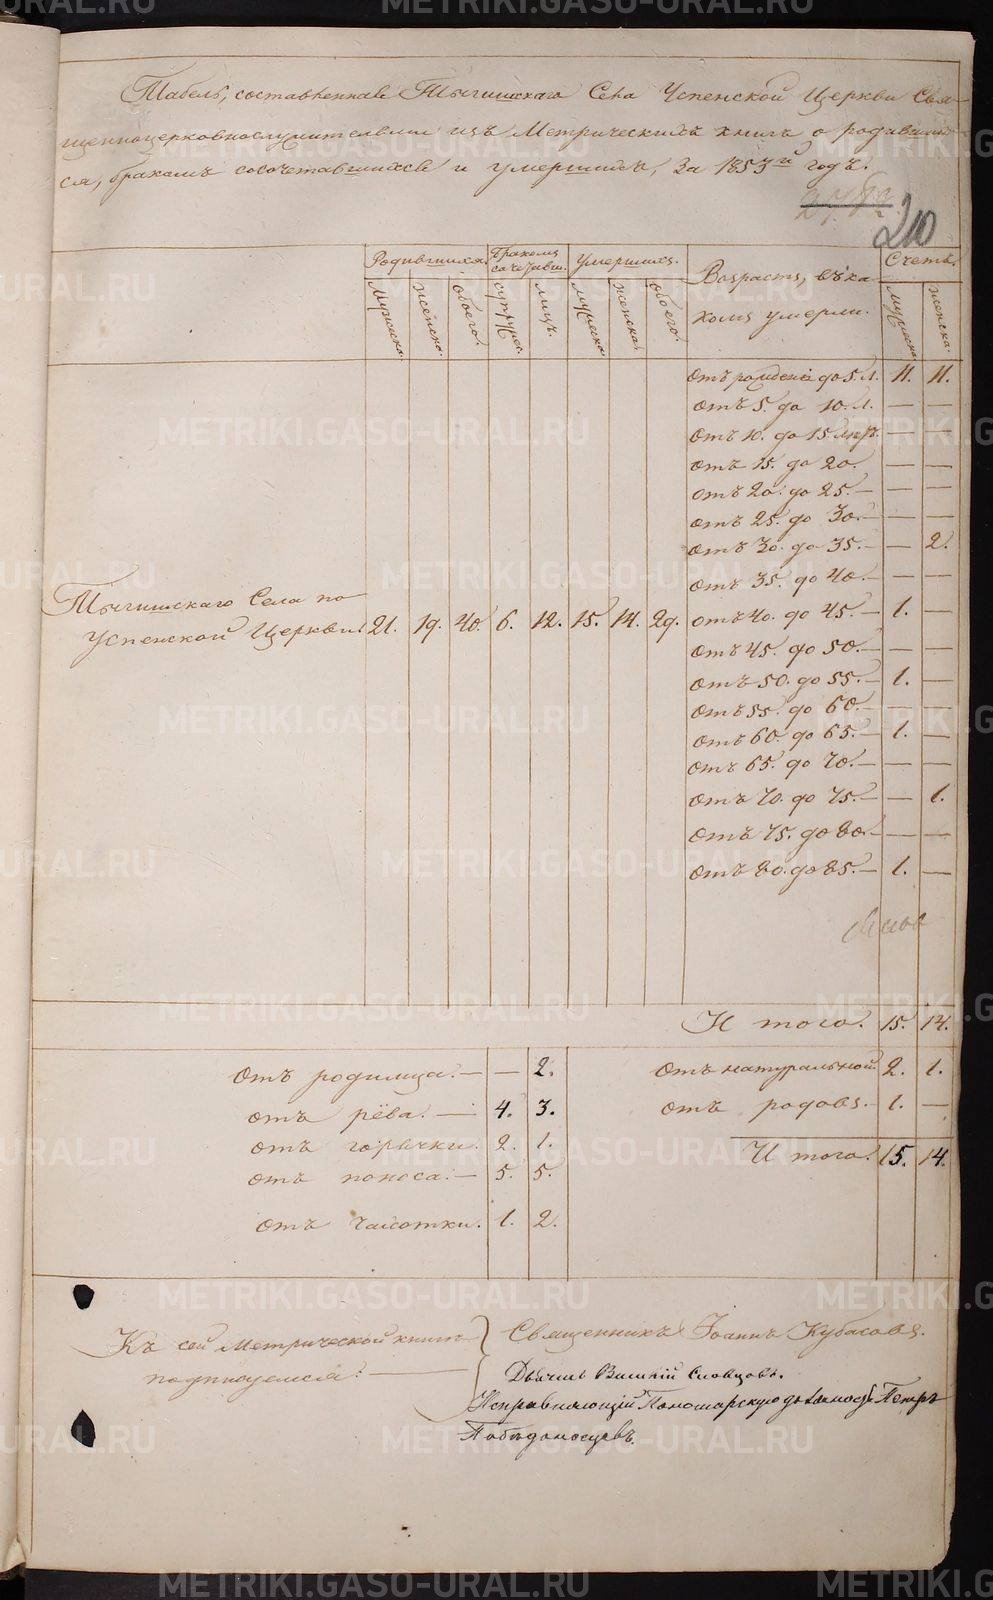 Табель, составленная Тыгишскаго Села Успенской Церкви Свя-
щенноцерковнослужителями изъ Метрическихъ книгъ о родивших-
ся, бракомъ сосочетавшихся и умершихъ, за 1853й годъ.
210
Родившихся. Бракомъ сочетавш. Умершихъ. Возрастъ, въ ка- Счетъ.
комъ умерли.
мужеска. женска. обоего. супруж. лицъ. мужеска. женска. обоего. мужеска. женска.
Отъ рожденiя до 5 л. 11. 11.
Отъ 5. до 10. л. — —
Отъ 10. до 15. — —
Отъ 15. до 20. — —
Отъ 20. до 25. — — —
Отъ 25. до 30. — — —
Отъ 30. до 35. — — 2.
Отъ 35. до 40. — — —
Тыгишскаго Села по
Успенской Церкви. 21. 19. 40. 6. 12. 15. 14. 29. Отъ 40. до 45. — 1. —
Отъ 45. до 50. — — —
Отъ 50. до 55. — 1. —
Отъ 55. до 60. — — —
Отъ 60. до 65. — 1. —
Отъ 65. до 70. — — —
Отъ 70. до 75. — — 1.
Отъ 75. до 80. — — —
Отъ 80. до 85. — 1. —
Итого. 15. 14.
Отъ родимца. — — 2. Отъ натуральной. 2. 1.
отъ рёва. — 4. 3. отъ родовъ. — 1. —
отъ горячки. 2. 1.
отъ поноса. — 5. 5. Итого. 15. 14.
отъ чахотки. 1. 2.
Къ сей Метрической книге
подписуемся: —
Священникъ Iоаннъ Кубасовъ.
Дьячекъ Василiй Словцовъ.
Исправляющiй Пономарскую должность Петръ
Победоносцевъ.
METRIKI.GASO-URAL.RU